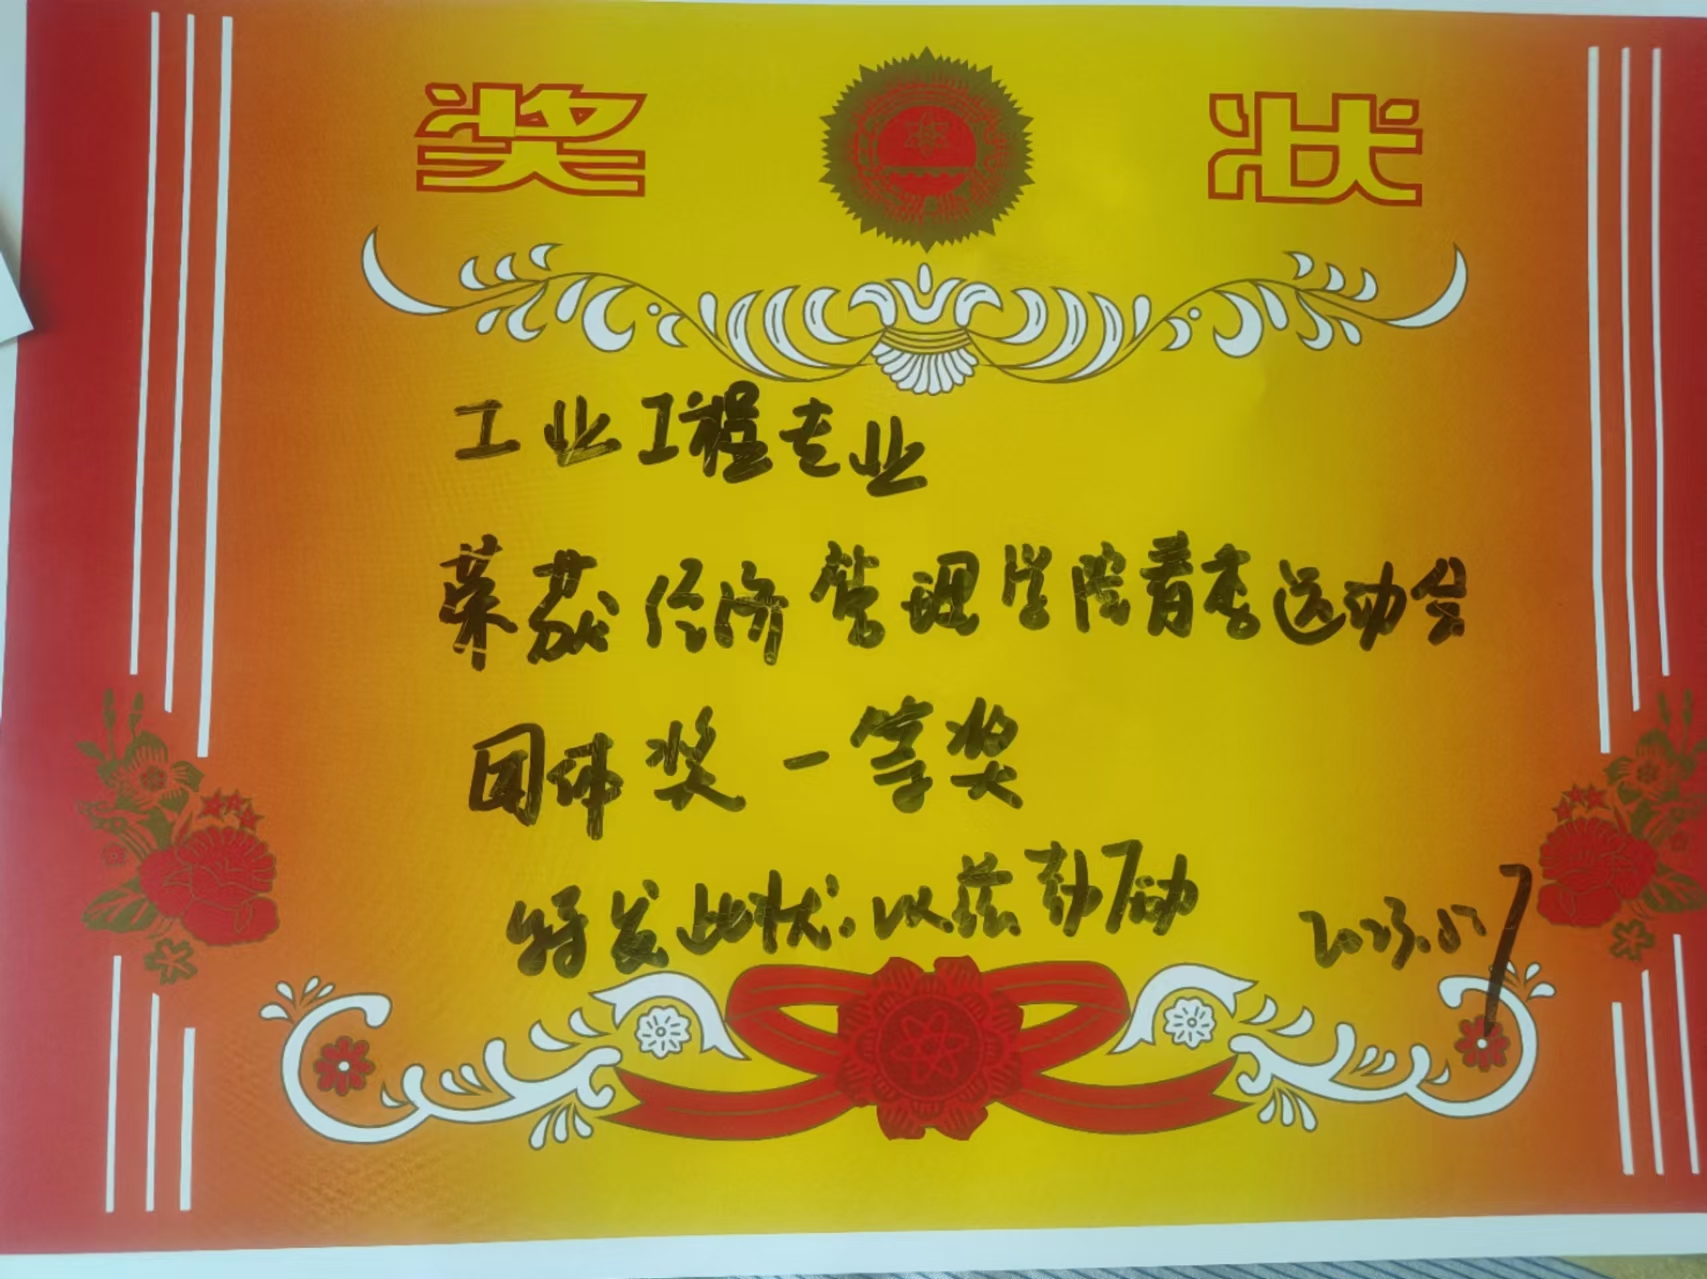 奖 状
工业工程专业
荣获经济管理学院春季运动会
团体奖 一等奖
特发此状,以兹鼓励